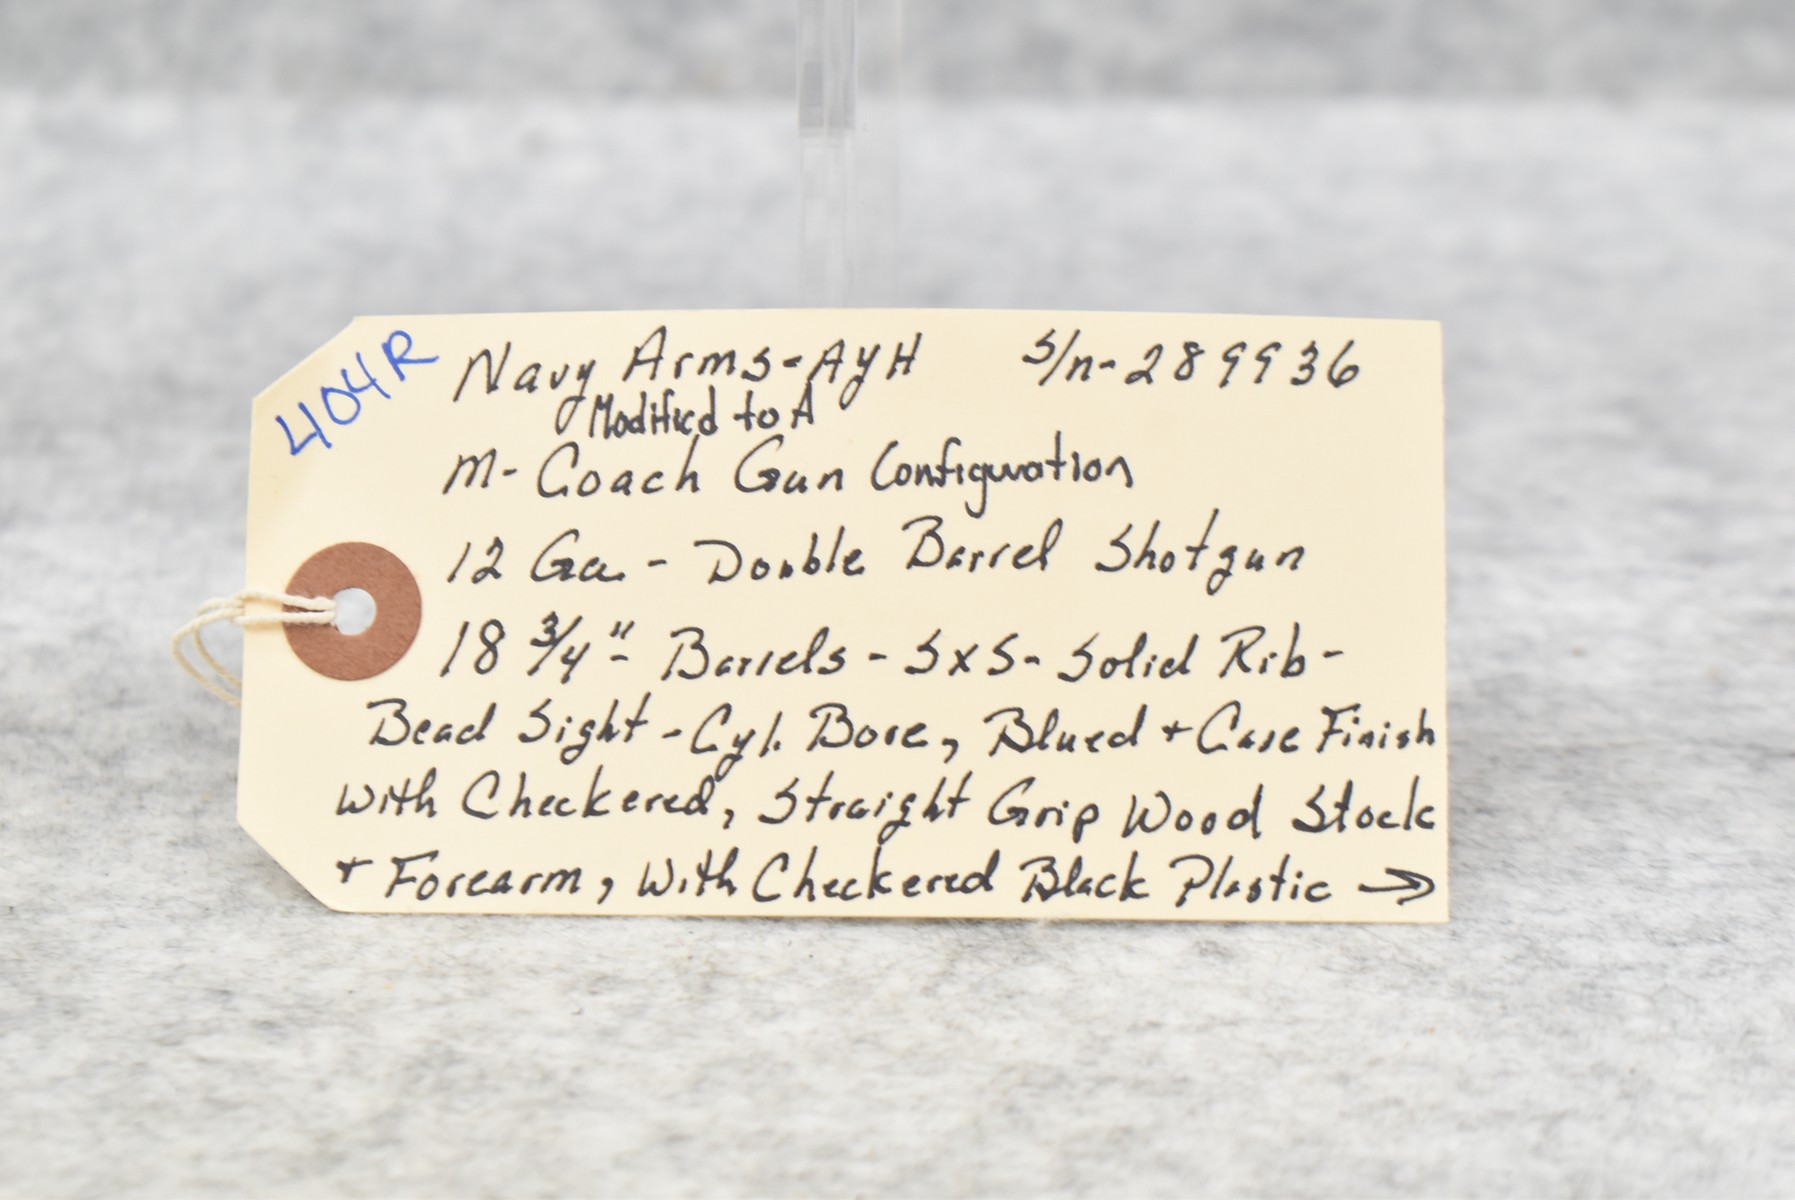 404R
Navy Arms-AyH S/n-289936
Modified to A
M- Coach Gun Configuration
12 Ga. - Double Barrel Shotgun
18 3/4"- Barrels - SxS- Solid Rib -
Bead Sight - Cyl. Bore, Blued + Case Finish
with Checkered, Straight Grip Wood Stock
+ Forearm, with Checkered Black Plastic →